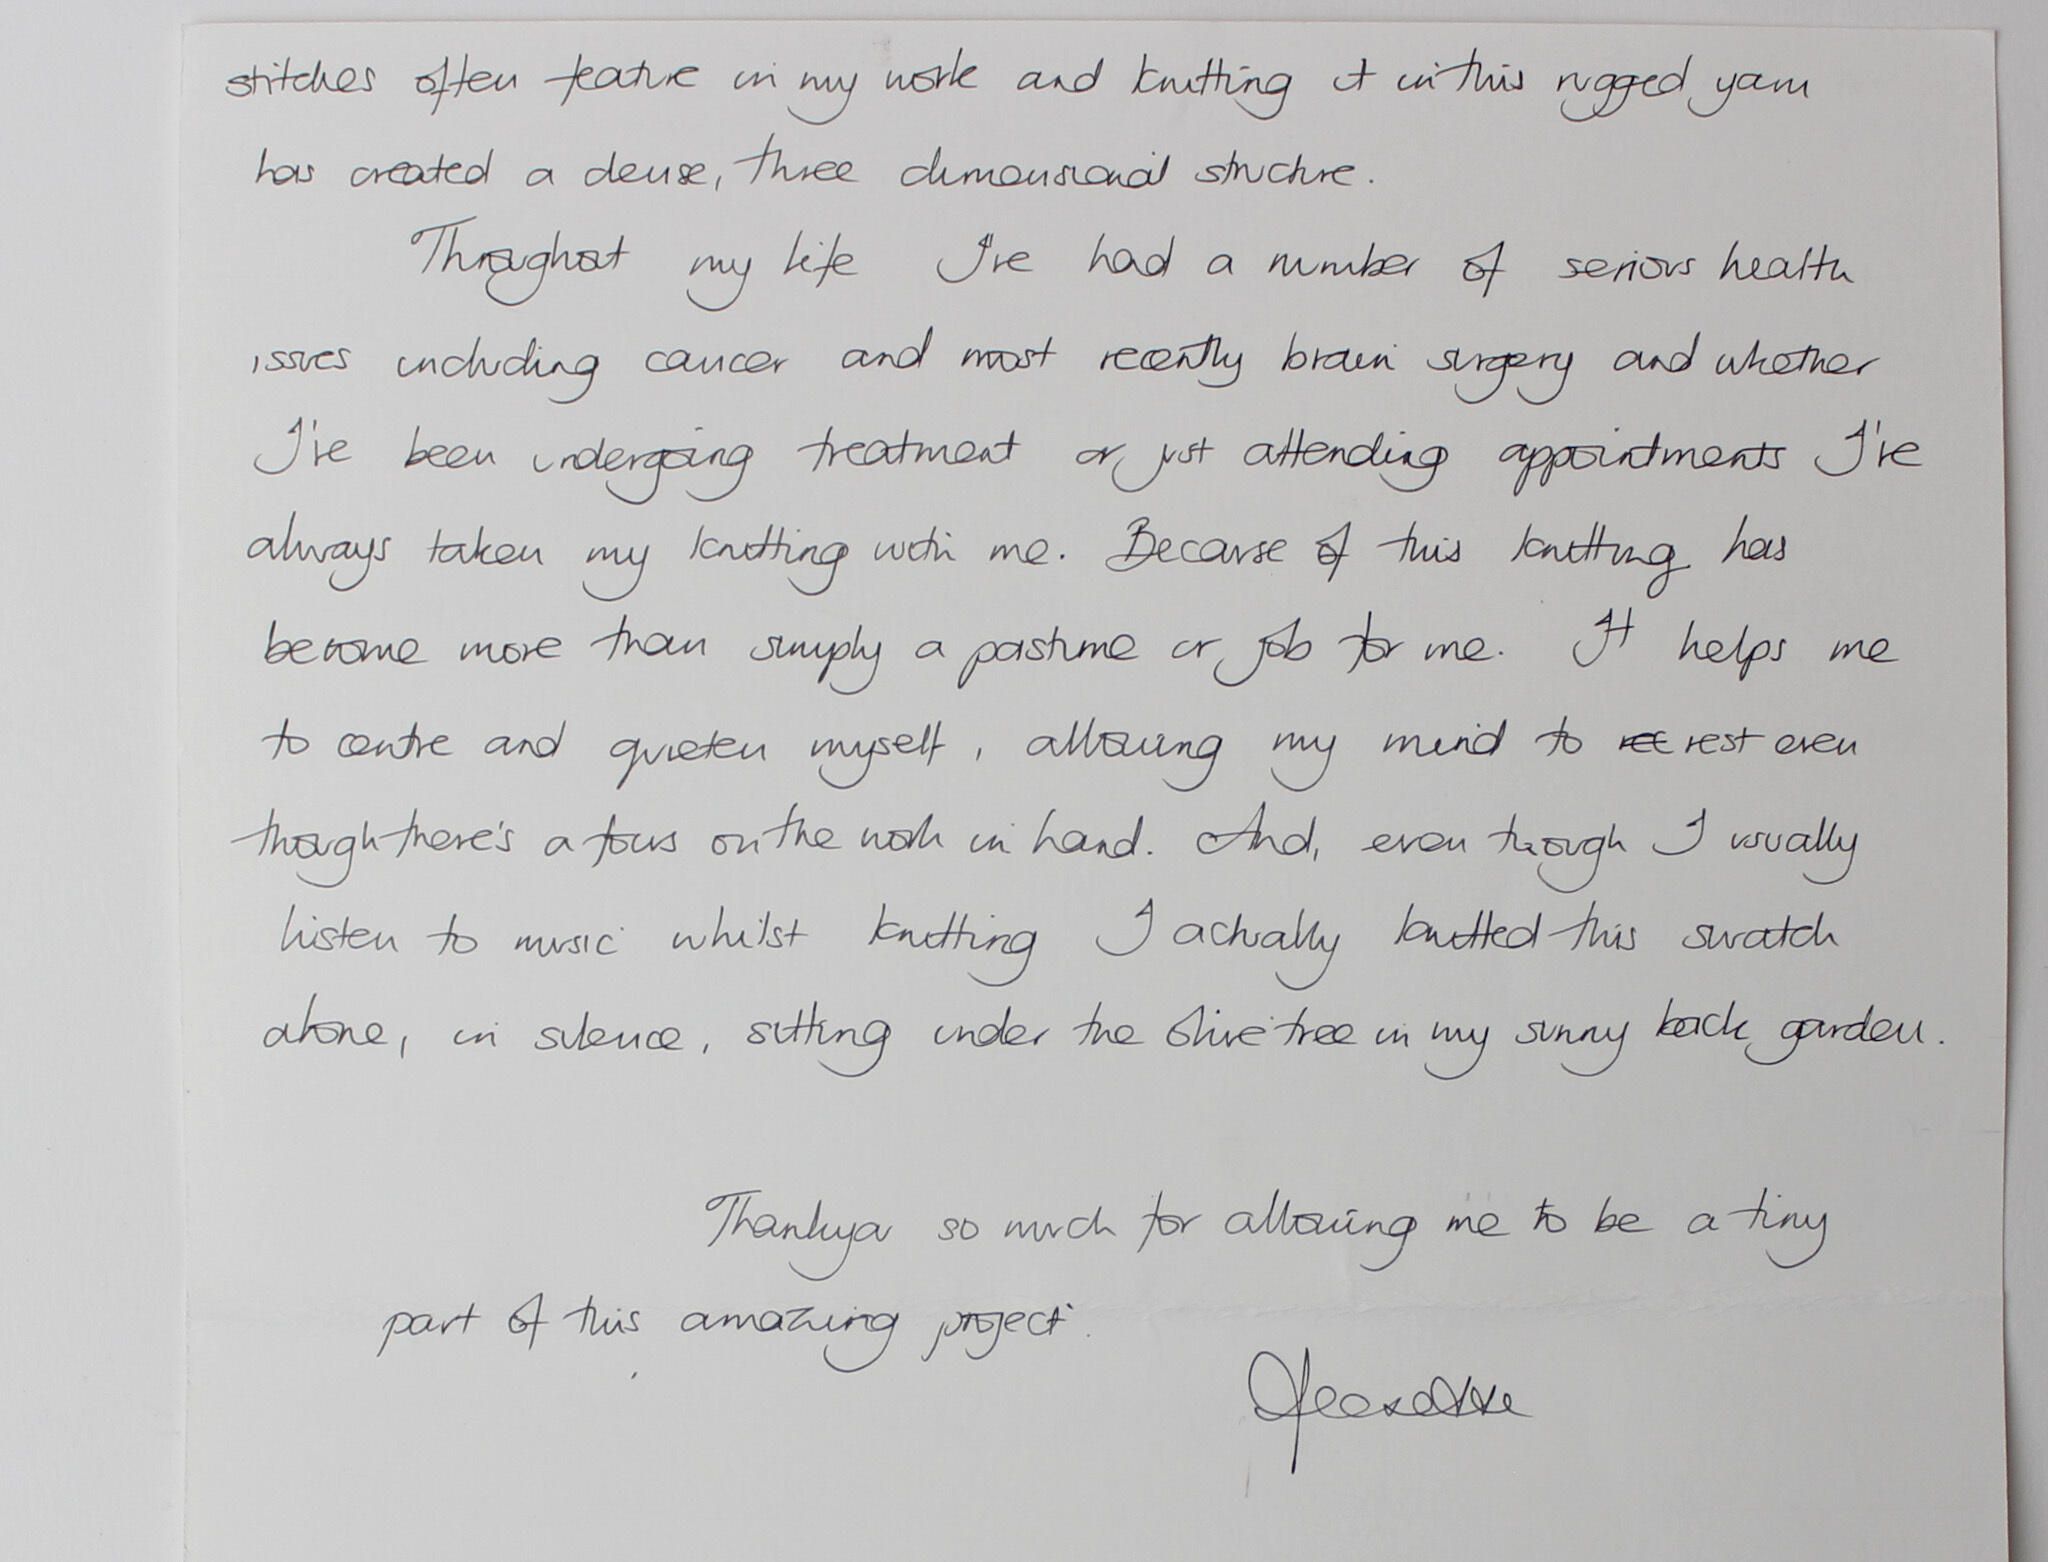 stitches often feature in my work and knitting it in this rugged yarn
has created a dense, three dimensional structure.
Throughout my life I've had a number of serious health
issues including cancer and most recently brain surgery and whether
I've been undergoing treatment or just attending appointments I've
always taken my knitting with me. Because of this knitting has
become more than simply a pastime or job for me. It helps me
to centre and quieten myself, allowing my mind to rest even
though there's a focus on the work in hand. And, even though I usually
listen to music whilst knitting I actually knitted this swatch
alone, in silence, sitting under the olive tree in my sunny back garden.
Thankyou so much for allowing me to be a tiny
part of this amazing project.